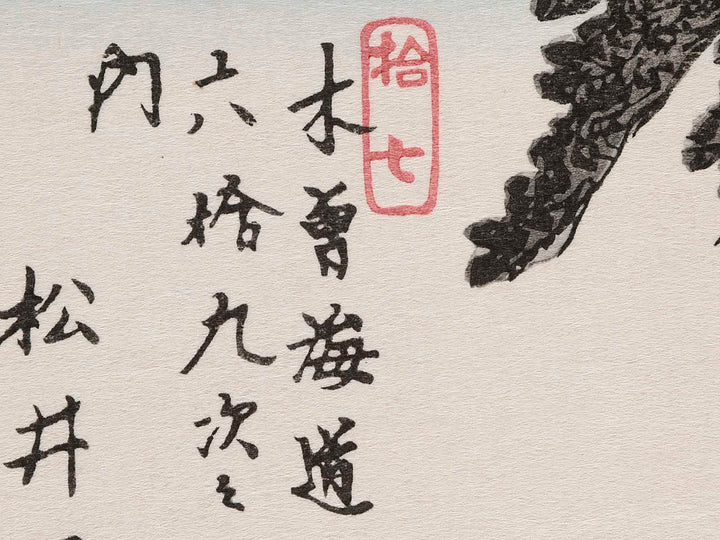 拾七
木曽海道
六拾九次之
内
松井